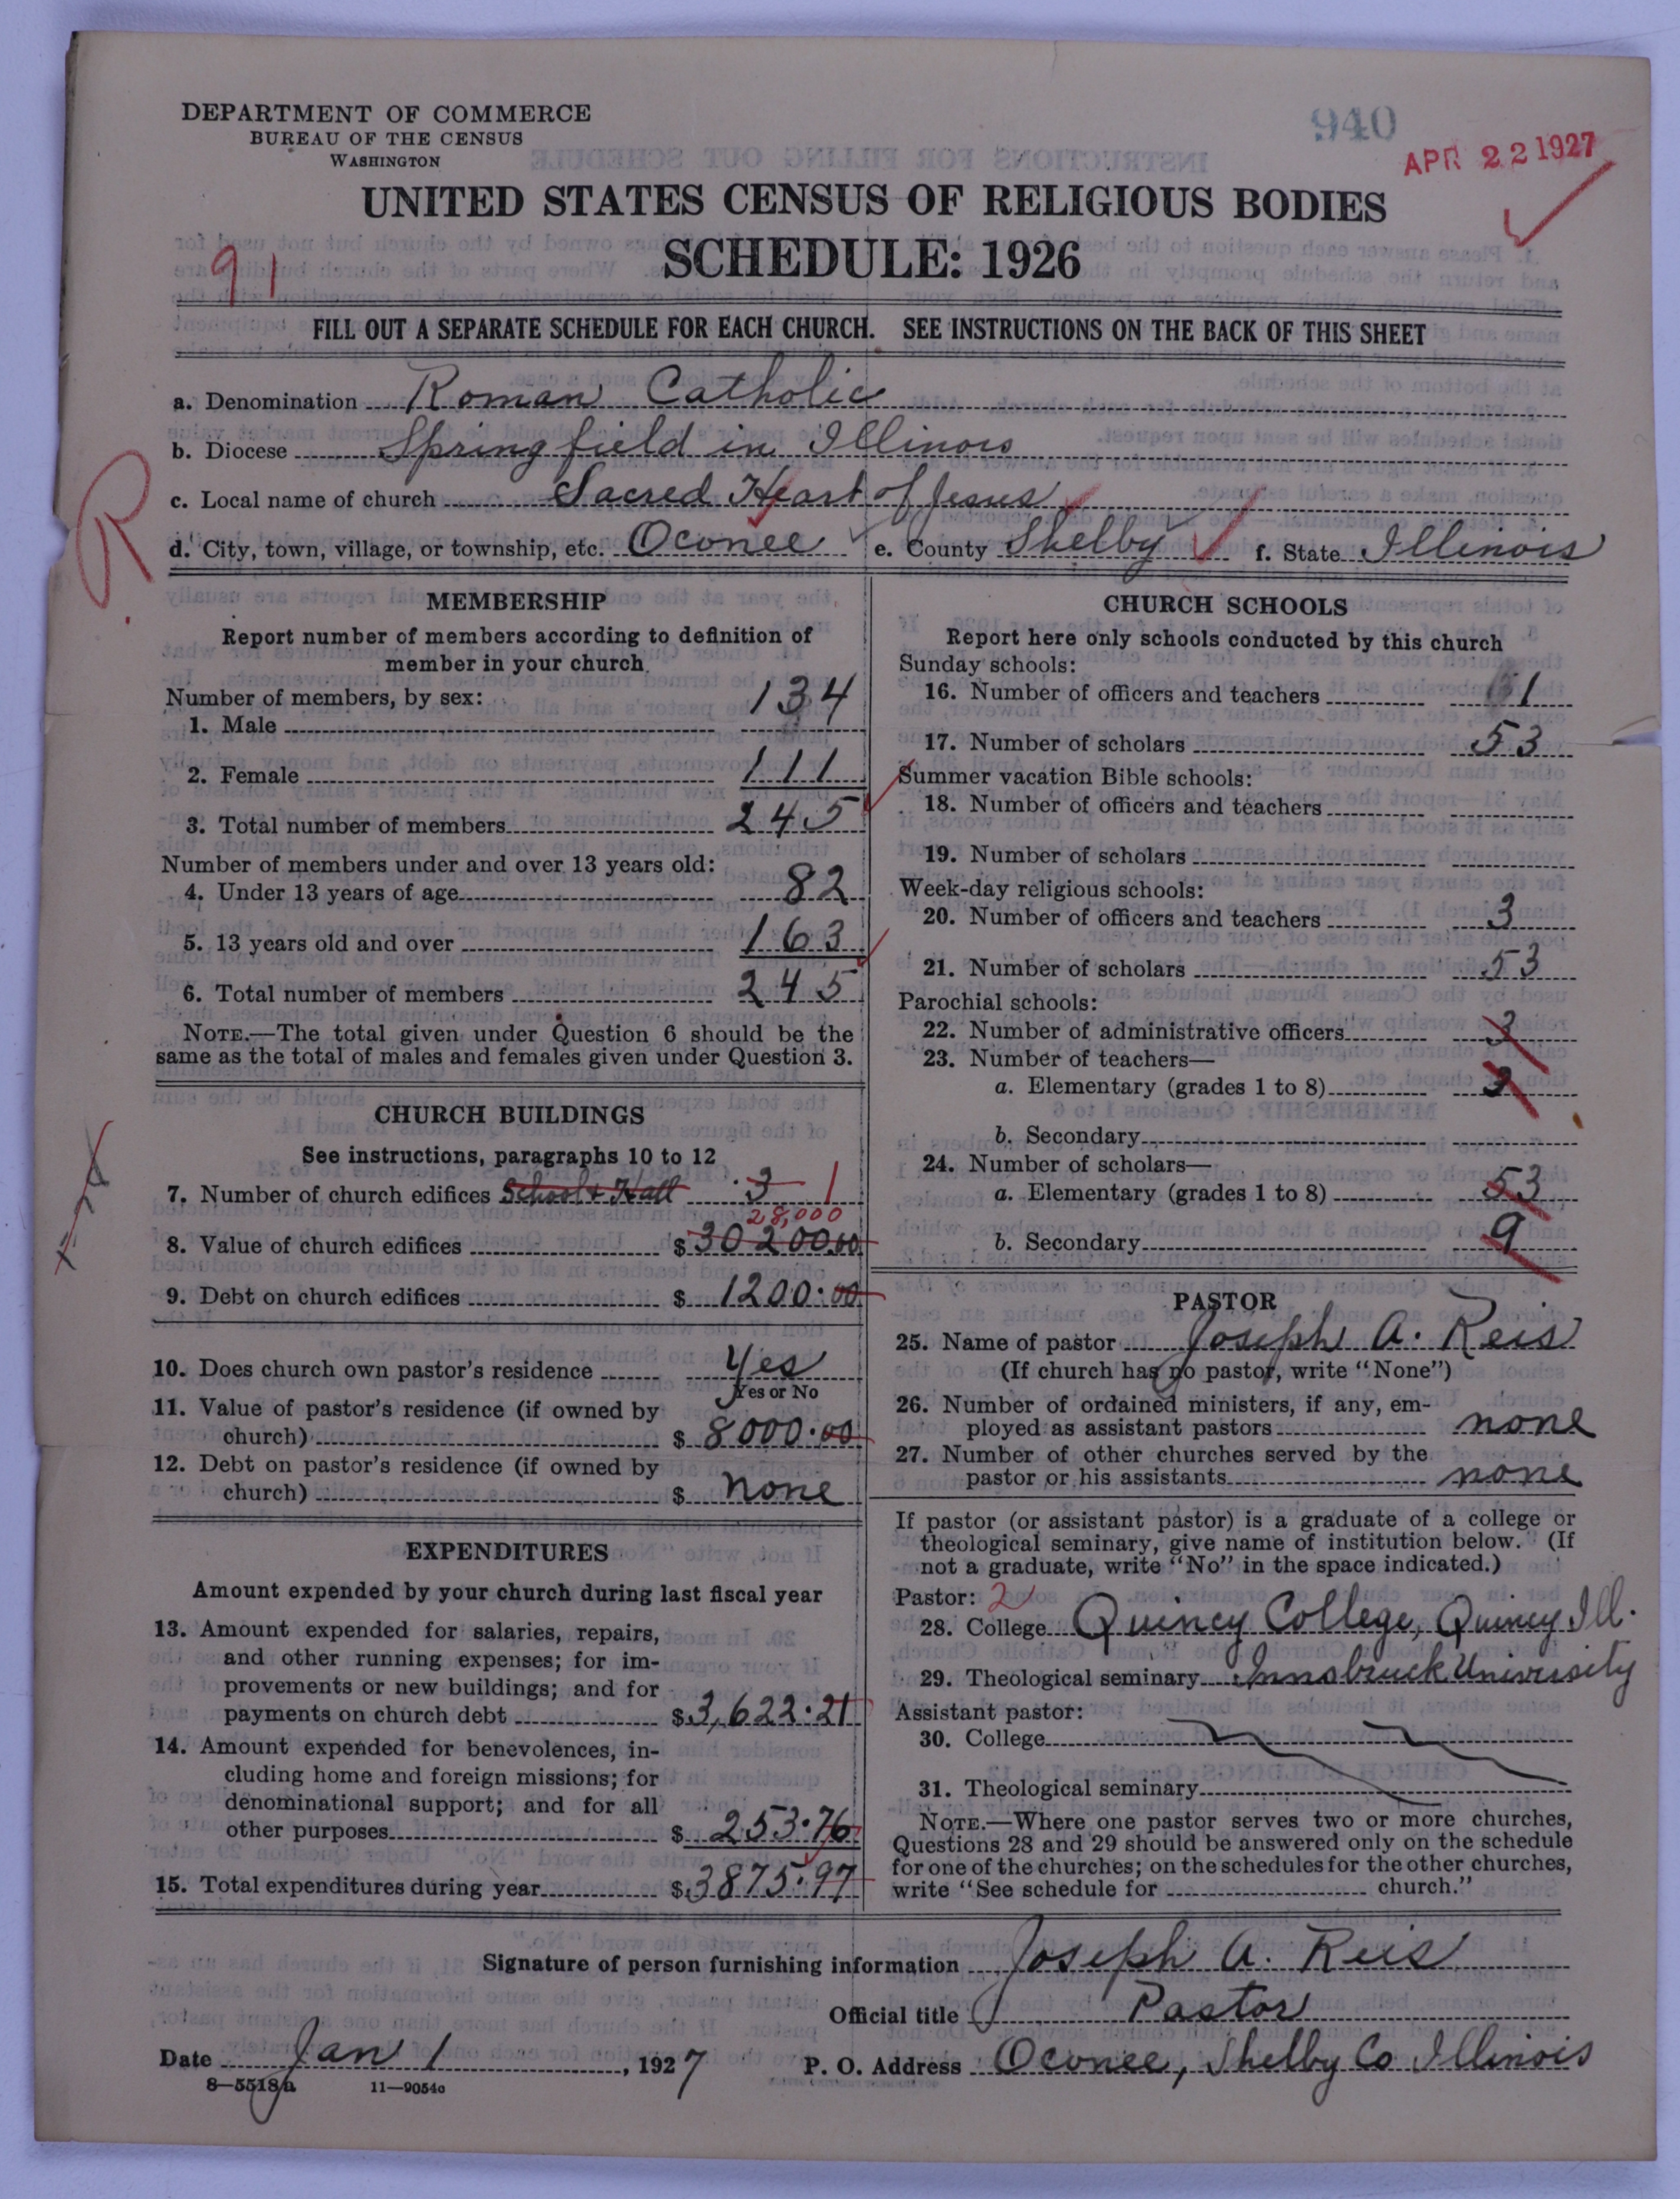 DEPARTMENT OF COMMERCE
BUREAU OF THE CENSUS
WASHINGTON
940
APR 22 1927
UNITED STATES CENSUS OF RELIGIOUS BODIES
SCHEDULE: 1926
91
FILL OUT A SEPARATE SCHEDULE FOR EACH CHURCH. SEE INSTRUCTIONS ON THE BACK OF THIS SHEET
a. Denomination Roman Catholic
b. Diocese Springfield in Illinois
c. Local name of church Sacred Heart of Jesus
R
d. City, town, village, or township, etc. Oconee e. County Shelby f. State Illinois
MEMBERSHIP
Report number of members according to definition of
member in your church
Number of members, by sex:
1. Male 134
2. Female 111
3. Total number of members 245
Number of members under and over 13 years old:
4. Under 13 years of age 82
5. 13 years old and over 163
6. Total number of members 245
NOTE.—The total given under Question 6 should be the
same as the total of males and females given under Question 3.
CHURCH BUILDINGS
See instructions, paragraphs 10 to 12
7. Number of church edifices School & Hall 3 1
28,000
8. Value of church edifices $ 30200.00
9. Debt on church edifices $ 1200.00
10. Does church own pastor's residence Yes
Yes or No
11. Value of pastor's residence (if owned by
church) $ 8000.00
12. Debt on pastor's residence (if owned by
church) $ none
EXPENDITURES
Amount expended by your church during last fiscal year
13. Amount expended for salaries, repairs,
and other running expenses; for im-
provements or new buildings; and for
payments on church debt $ 3,622.21
14. Amount expended for benevolences, in-
cluding home and foreign missions; for
denominational support; and for all
other purposes $ 253.76
15. Total expenditures during year $ 3875.97
CHURCH SCHOOLS
Report here only schools conducted by this church
Sunday schools:
16. Number of officers and teachers 1
17. Number of scholars 53
Summer vacation Bible schools:
18. Number of officers and teachers
19. Number of scholars
Week-day religious schools:
20. Number of officers and teachers 3
21. Number of scholars 53
Parochial schools:
22. Number of administrative officers 3
23. Number of teachers—
a. Elementary (grades 1 to 8) 3
b. Secondary
24. Number of scholars—
a. Elementary (grades 1 to 8) 53
b. Secondary 9
PASTOR
25. Name of pastor Joseph A. Reis
(If church has no pastor, write "None")
26. Number of ordained ministers, if any, em-
ployed as assistant pastors none
27. Number of other churches served by the
pastor or his assistants none
If pastor (or assistant pastor) is a graduate of a college or
theological seminary, give name of institution below. (If
not a graduate, write "No" in the space indicated.)
Pastor: 2
28. College Quincy College, Quincy Ill.
29. Theological seminary Innsbruck University
Assistant pastor:
30. College
31. Theological seminary
NOTE.—Where one pastor serves two or more churches,
Questions 28 and 29 should be answered only on the schedule
for one of the churches; on the schedules for the other churches,
write "See schedule for church."
Signature of person furnishing information Joseph A. Reis
Official title Pastor
Date Jan 1, 1927 P. O. Address Oconee, Shelby Co Illinois
8—5518a 11—9054c